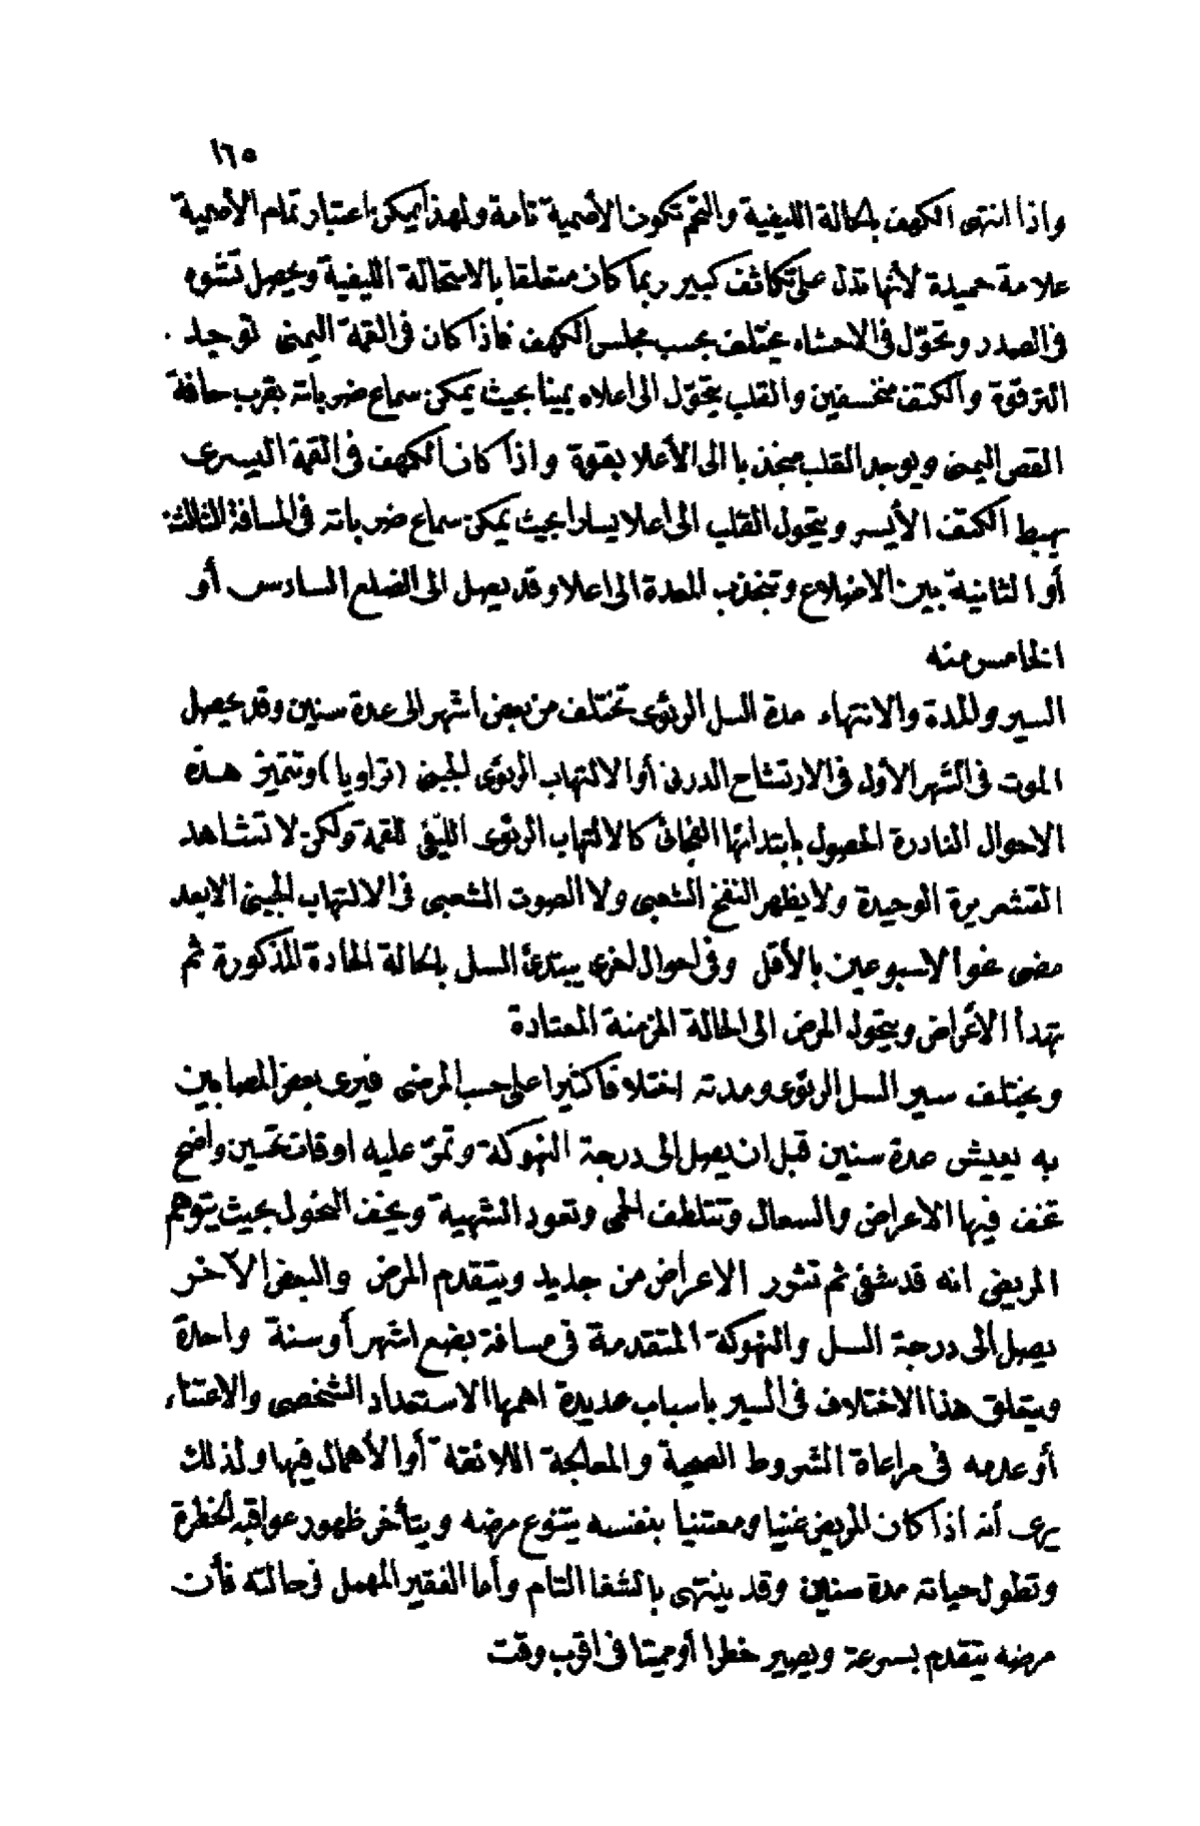 ١٦٥
واذا انتهى الكهف بالحالة الليفية والتحم تكون الأصمية تامة ولهذا يمكن اعتبار تمام الأصمية
علامة حميدة لأنها تدل على تكاثف كبير ربما كان متعلقا بالاستحالة الليفية ويحصل تشوه
فى الصدر وتحوّل فى الاحشاء يختلف بحسب مجلس الكهف فاذا كان فى القمة اليمنى توجد
الترقوة والكتف منخسفين والقلب يتحوّل الى اعلاه يمينا بحيث يمكن سماع ضرباته بقرب حافة
القص اليمنى ويوجد القلب منجذبا الى الأعلا بقوة واذا كان الكهف فى القمة اليسرى
يهبط الكتف الأيسر ويتحول القلب الى اعلا يسارا بحيث يمكن سماع ضرباته فى المسافة الثالثة
أو الثانية بين الاضلاع وتنجذب المعدة الى اعلا وقد يصل الى الضلع السادس أو
الخامس منه
السير والمدة والانتهاء مدة السل الرئوى تختلف من بعض اشهر الى عدة سنين وقد يحصل
الموت فى الشهر الأول فى الارتشاح الدرنى أو الالتهاب الرئوى الجبنى (تراوبا) وتتميز هذه
الاحوال النادرة الحصول بابتدائها الفجائى كالالتهاب الرئوى الليفى للقمة ولكن لا تشاهد
القشعريرة الوحيدة ولا يظهر النفخ الشعبى ولا الصوت الشعبى فى الالتهاب الجبنى الا بعد
مضى نحو الاسبوعين بالأقل وفى احوال اخرى يبتدئ السل بالحالة الحادة المذكورة ثم
تهدأ الأعراض ويتحول المرض الى الحالة المزمنة المعتادة
ويختلف سير السل الرئوى ومدته اختلافا كثيرا على حسب المرضى فيرى بعض المصابين
به يعيش عدة سنين قبل ان يصل الى درجة النهوكة وتمرّ عليه اوقات تحسين واضح
تخف فيها الاعراض والسعال وتتلطف الحمى وتعود الشهية ويخف النحول بحيث يتوهم
المريض انه قد شفى ثم تثور الاعراض من جديد ويتقدم المرض والبعض الآخر
يصل الى درجة السل والنهوكة المتقدمة فى مسافة بضع اشهر أو سنة واحدة
ويتعلق هذا الاختلاف فى السير باسباب عديدة اهمها الاستعداد الشخصى والاعتناء
أو عدمه فى مراعاة الشروط الصحية والمعالجة اللائقة أو الأهمال فيها ولذلك
يرى أنه اذا كان المريض غنيا ومعتنيا بنفسه يتنوع مرضه ويتأخر ظهور عواقبه الخطرة
وتطول حياته مدة سنين وقد ينتهى بالشفا التام وأما الفقير المهمل فى حالته فأن
مرضه يتقدم بسرعة ويصير خطرا أو مميتا فى اقرب وقت